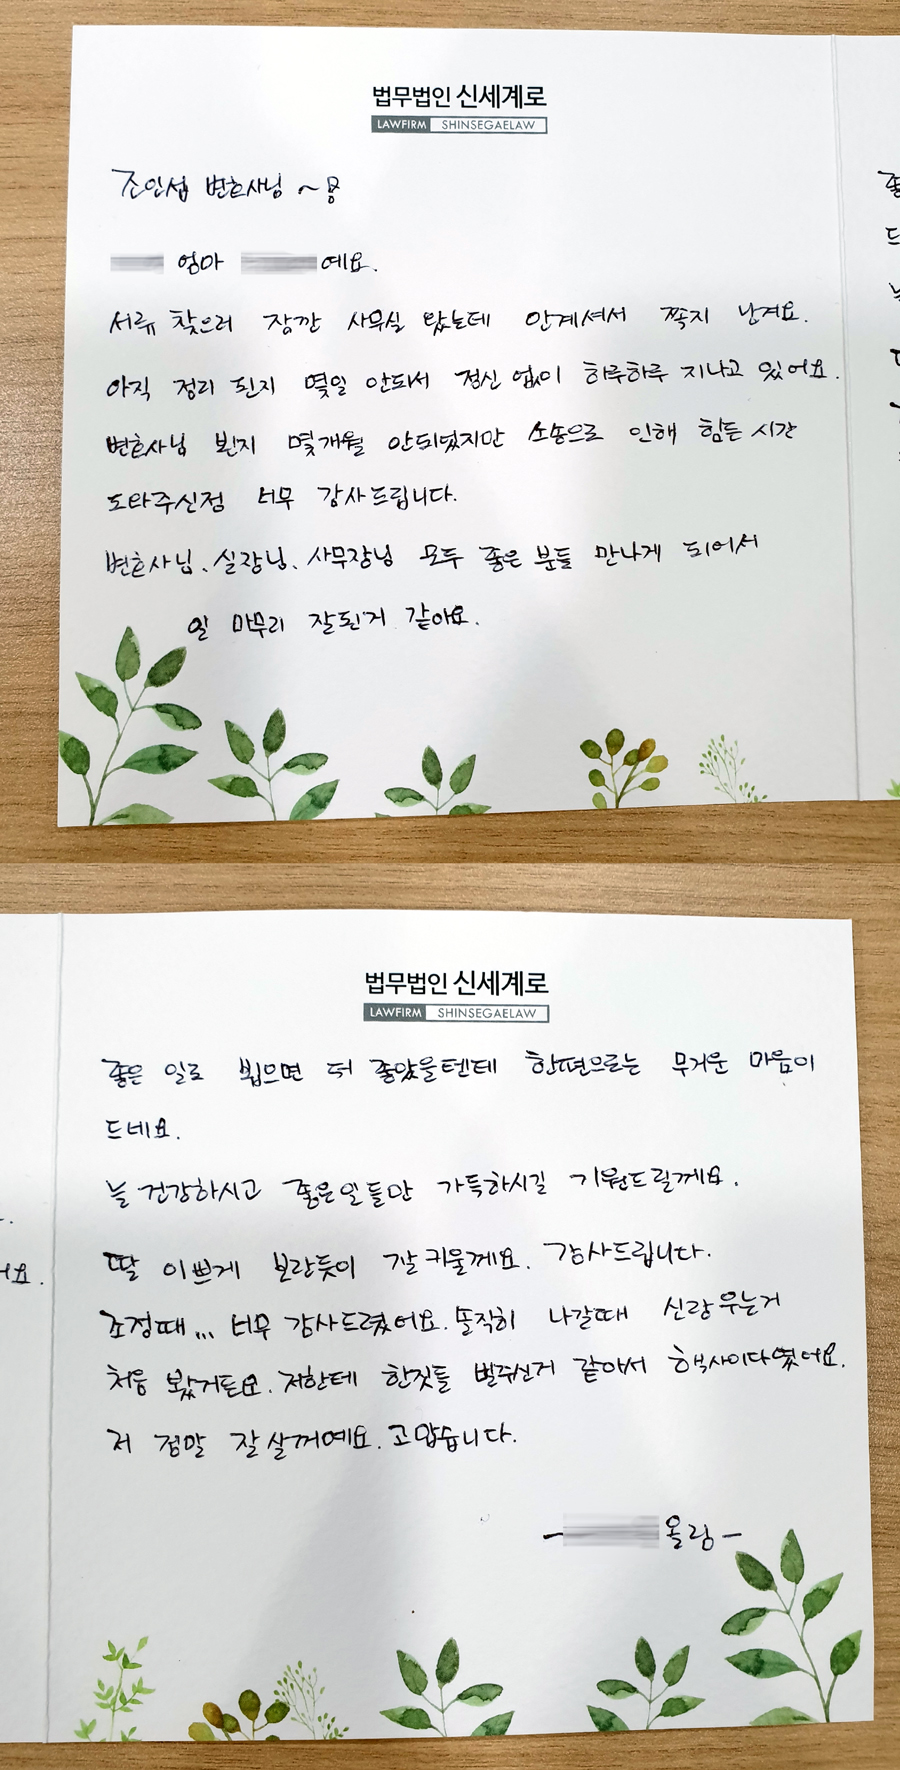 법무법인 신세계로
LAWFIRM SHINSEGAELAW
조인섭 변호사님 ~
엄마 예요.
서류 찾으러 잠깐 사무실 왔는데 안계셔서 쪽지 남겨요.
아직 정리 된지 몇일 안되서 정신 없이 하루하루 지나고 있어요.
변호사님 뵌지 몇개월 안되었지만 소송으로 인해 힘든 시간
도와주신점 너무 감사드립니다.
변호사님, 실장님, 사무장님 모두 좋은 분들 만나게 되어서
일 마무리 잘된거 같아요.
법무법인 신세계로
LAWFIRM SHINSEGAELAW
좋은 일로 뵙으면 더 좋았을텐데 한편으로는 무거운 마음이
드네요.
늘 건강하시고 좋은일들만 가득하시길 기원드릴께요.
딸 이쁘게 보란듯이 잘 키울께요. 감사드립니다.
조정때... 너무 감사드렸어요. 솔직히 나갈때 신랑 우는거
처음 봤거든요. 저한테 한짓들 벌주신거 같아서 속사이다였어요.
저 정말 잘 살꺼예요. 고맙습니다.
- 올림 -